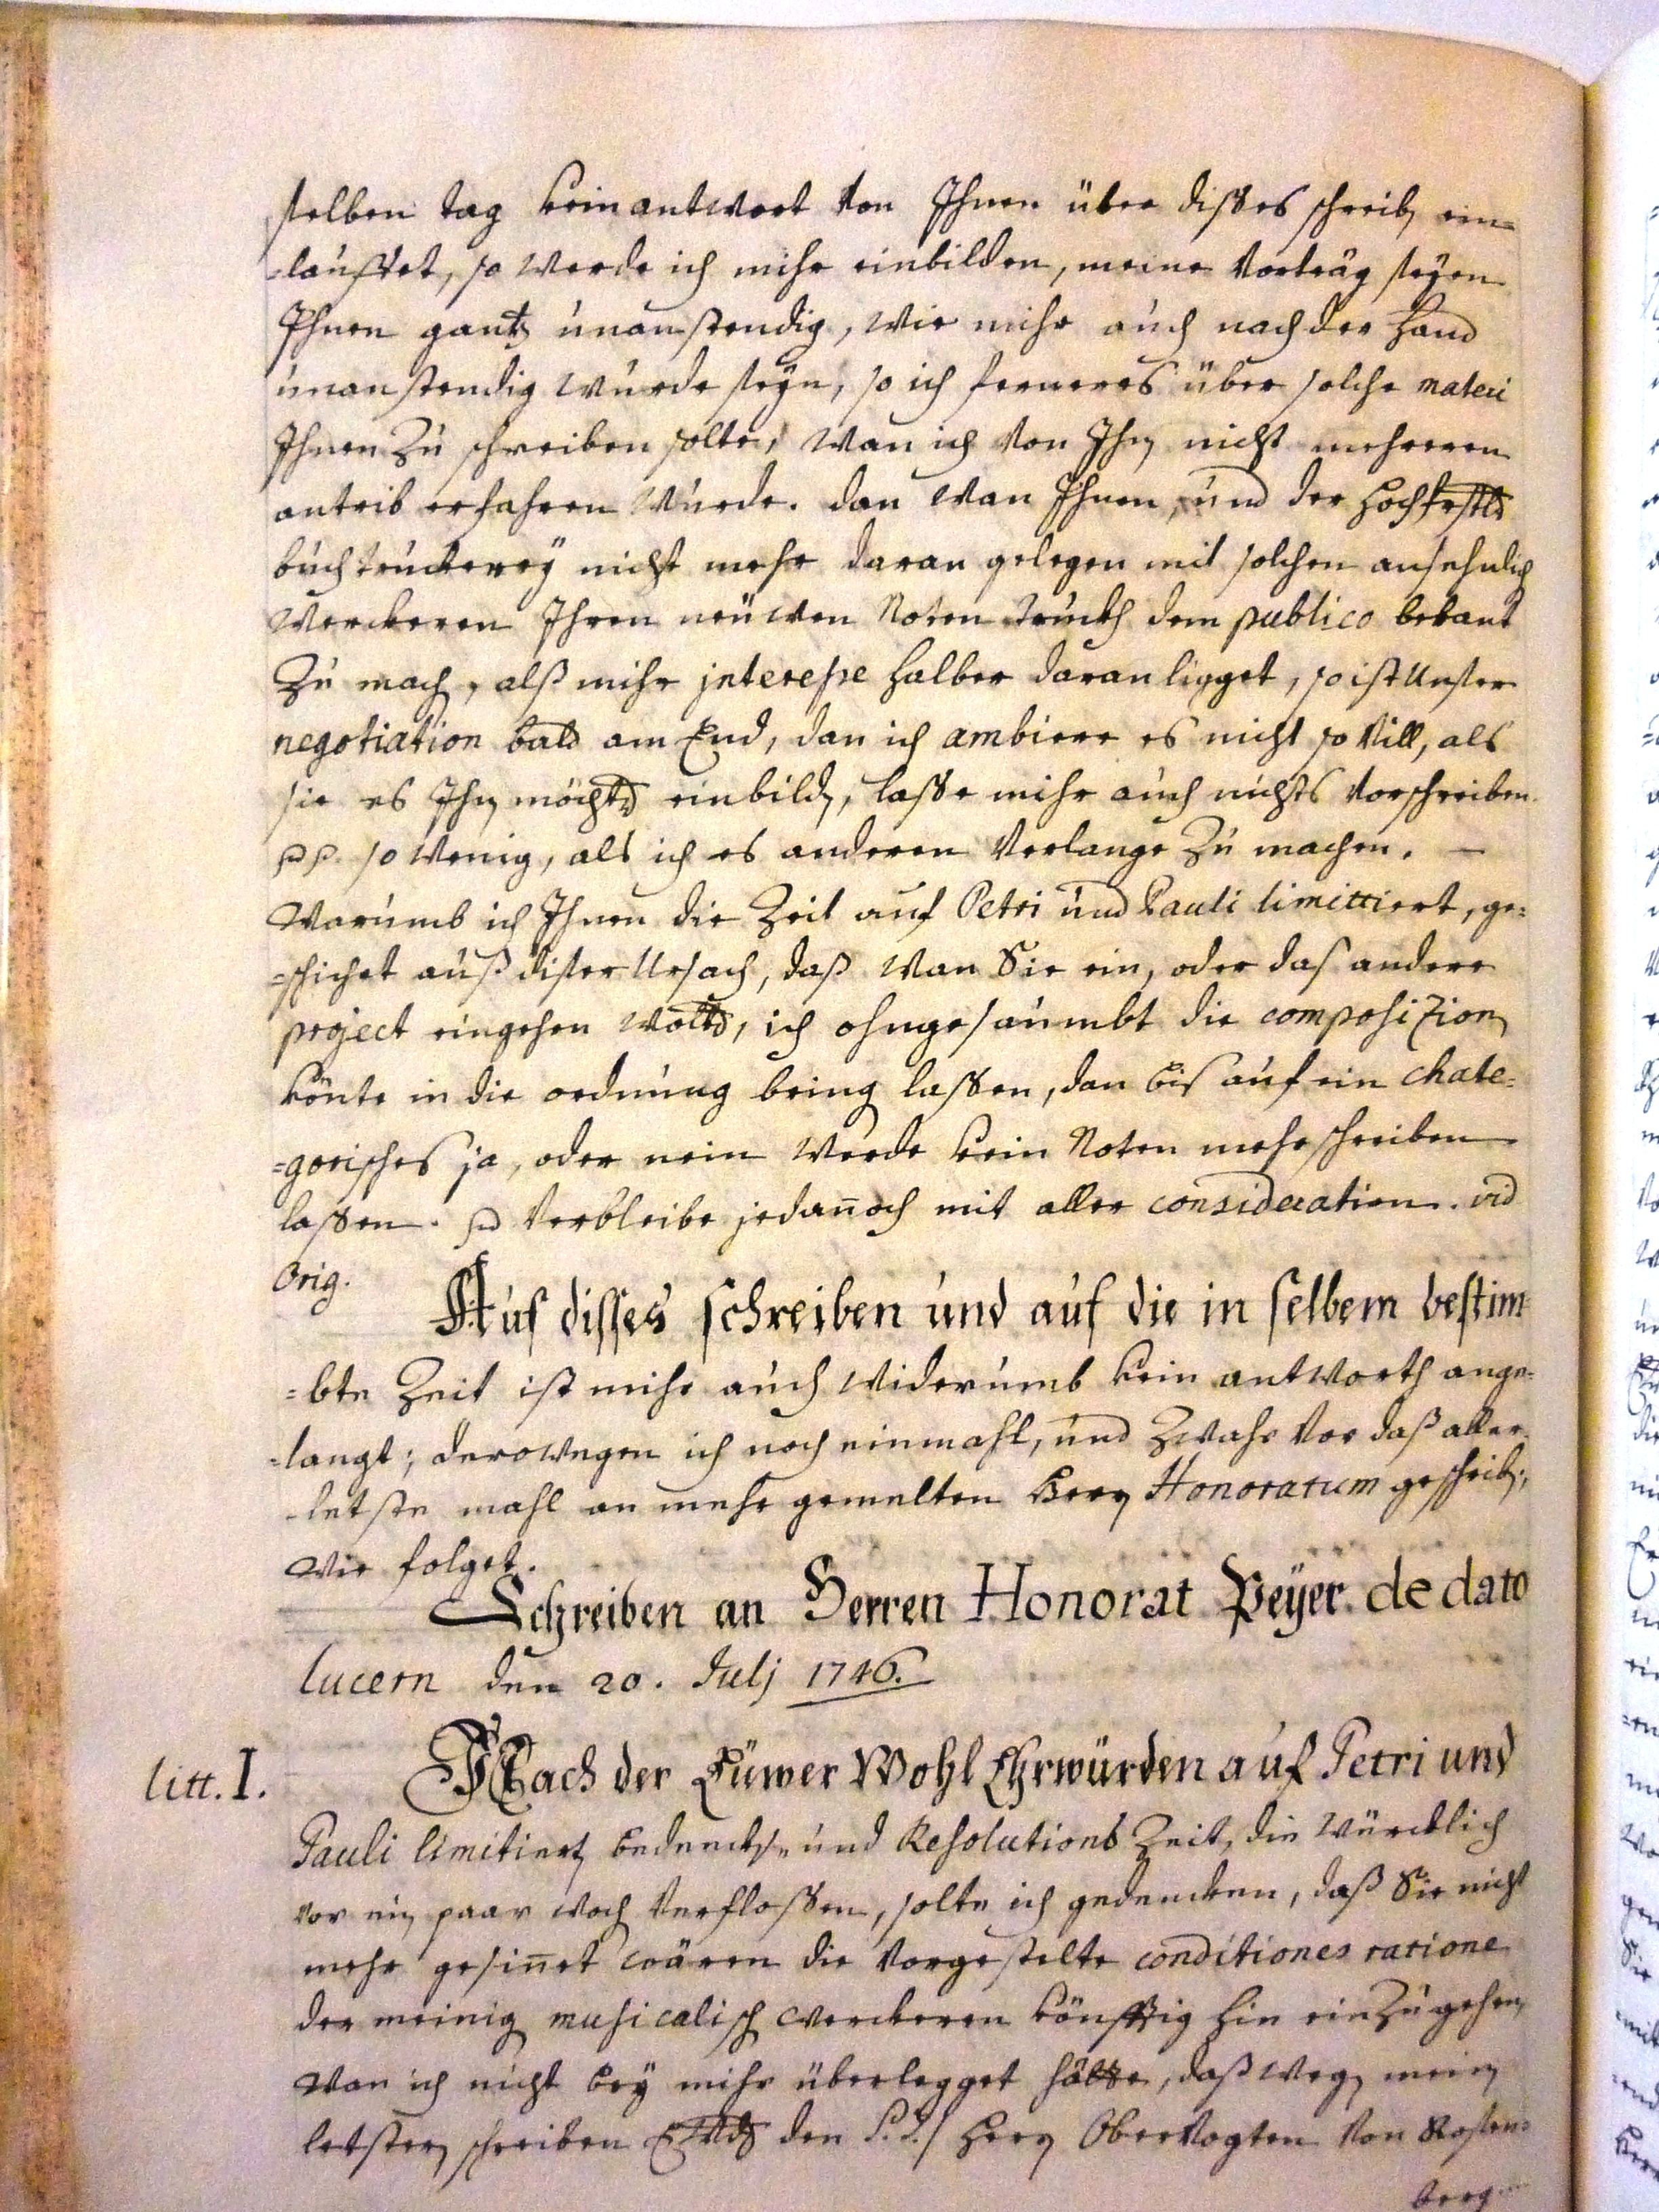 selben tag kein antwort von Ihnen über disses schreib ein=
=lauffet, so werde ich mihr einbilden, meine vorträg seyen
Ihnen gantz unanstendig, wie mihr auch nach der hand
unanstendig wurde seyn, so ich ferneres über solche materi
Ihnen zu schreiben solte, wan ich von Ihn nicht mehreren
antrib erfahren wurde. dan wan Ihnen, und der hochfrstl
buchtruckerey nicht mehr daran gelegen mit solchen ansehnlich
werckeren Ihren neüwen Noten truckh dem publico bekant
zu mach, alß mihr interesse halber daran ligget, so ist unser
negotiation bald am End, dan ich ambiere es nicht so vill, als
sie es Ihn möchtd einbild, lasse mihr auch nichts vorschreiben
so wenig, als ich es anderen verlange zu machen. —
Warumb ich Ihnen die Zeit auf Petri und Pauli limittiert, ge=
=schichet auß diser Ursach, daß wan Sie ein, oder das andere
project eingehen woltd, ich ohngesaumbt die composizion
könte in die ordnung bring lassen, dan bis auf ein chate=
=gorisches ja, oder nein werde kein Noten mehr schreiben
lassen. verbleibe jedannoch mit aller consideration. vid
Orig.
Auf disses schreiben und auf die in selbem bestim
=bte Zeit ist mihr auch widerumb kein antworth ange=
=langt; derowegen ich noch einmahl, und zwahr vor daß aller
-letste mahl an mehr gemelten Herrn Honoratum geschrib,
wie folget.
Schreiben an Herren Honorat Peÿer de dato
Lucern den 20. Julj 1746.
litt. I.
Nach der Eüwer Wohl Ehrwürden auf Petri und
Pauli limitiert bedenckh= und Resolutions Zeit, die würcklich
vor ein paar woch verflossen, solte ich gedencken, daß Sie nicht
mehr gesinnet wären die vorgestelte conditiones ratione
der meinig musicalisch werckeren könfftig hin einzugehen,
wan ich nicht bey mihr überlegget hätte, daß weg mein
letsten schreiben den S.T. Herrn Obervogten von Rosen=
berg